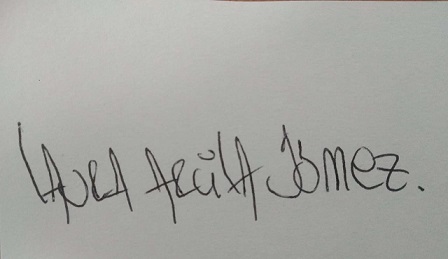 LAURA ARCILA GÓMEZ.